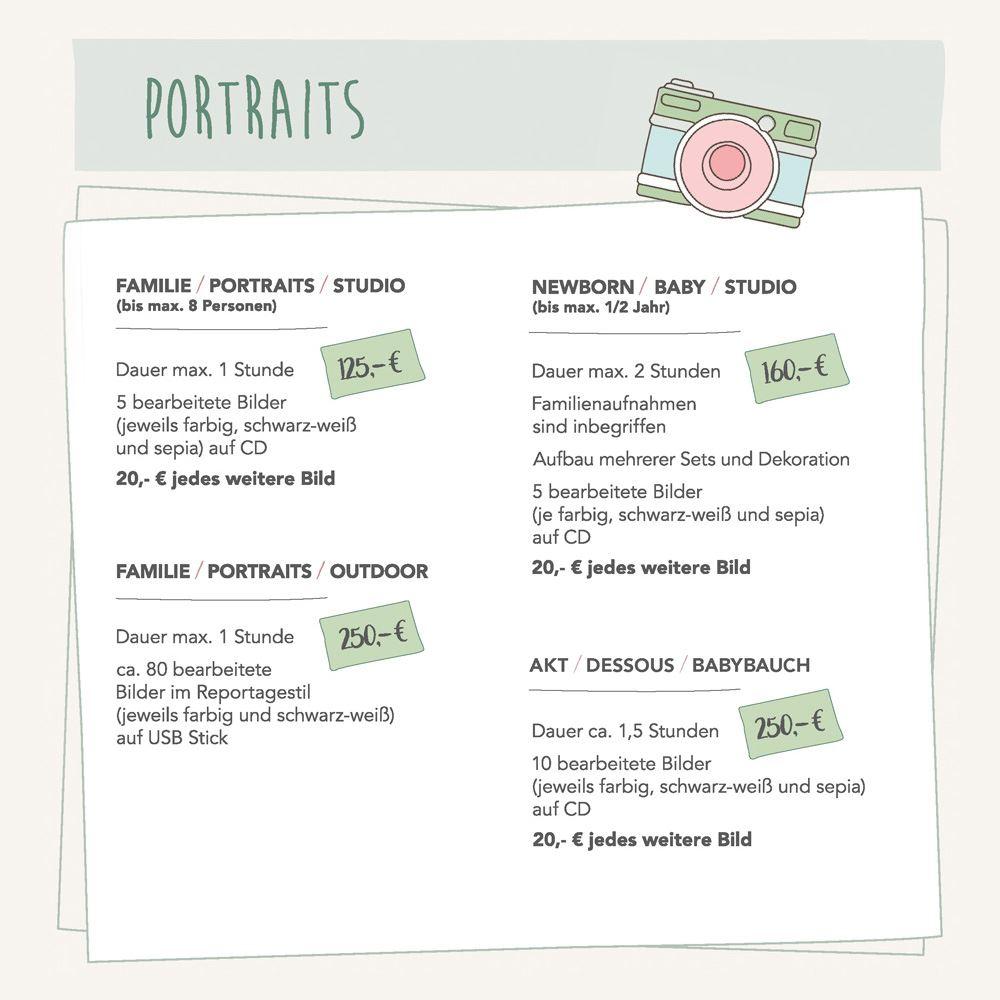 PORTRAITS
FAMILIE / PORTRAITS / STUDIO
(bis max. 8 Personen)
Dauer max. 1 Stunde
125,- €
5 bearbeitete Bilder
(jeweils farbig, schwarz-weiß
und sepia) auf CD
20,- € jedes weitere Bild
FAMILIE / PORTRAITS / OUTDOOR
Dauer max. 1 Stunde
250,- €
ca. 80 bearbeitete
Bilder im Reportagestil
(jeweils farbig und schwarz-weiß)
auf USB Stick
NEWBORN / BABY / STUDIO
(bis max. 1/2 Jahr)
Dauer max. 2 Stunden
160,- €
Familienaufnahmen
sind inbegriffen
Aufbau mehrerer Sets und Dekoration
5 bearbeitete Bilder
(je farbig, schwarz-weiß und sepia)
auf CD
20,- € jedes weitere Bild
AKT / DESSOUS / BABYBAUCH
Dauer ca. 1,5 Stunden
250,- €
10 bearbeitete Bilder
(jeweils farbig, schwarz-weiß und sepia)
auf CD
20,- € jedes weitere Bild